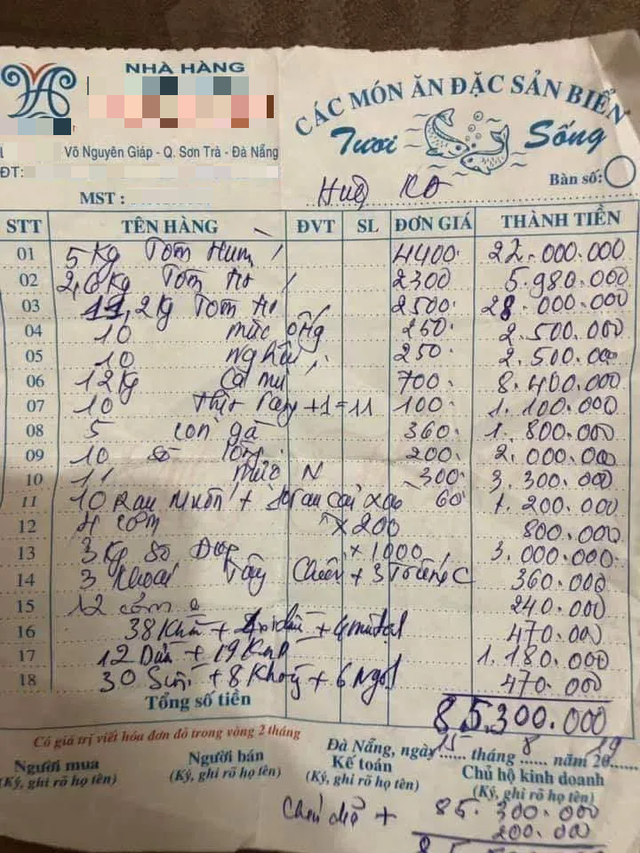 NHÀ HÀNG
CÁC MÓN ĂN ĐẶC SẢN BIỂN
Tươi Sống
Võ Nguyên Giáp - Q. Sơn Trà - Đà Nẵng
ĐT:
MST :
Bàn số:
STT TÊN HÀNG ĐVT SL ĐƠN GIÁ THÀNH TIỀN
01 5 Kg Tôm Hùm 4400 22.000.000
02 2,6 Kg Tôm 2300 5.980.000
03 11,2 Kg Tôm 2500 28.000.000
04 10 mực ống 250 2.500.000
05 10 nghêu 250 2.500.000
06 12 Kg Cá mú 700 8.400.000
07 10 Thịt +1=11 100 1.100.000
08 5 con gà 360 1.800.000
09 10 200 2.000.000
10 11 mực N 300 3.300.000
11 10 Rau Muốn + 60 1.200.000
12 4 cơm x200 800.000
13 3 Kg x1000 3.000.000
14 3 Khoai Tây Chiên + 3 Trứng C 360.000
15 12 cơm 240.000
16 38 Khăn + 470.000
17 12 Dừa + 19 Ken 1.180.000
18 30 Suối + 8 + 6 Ngọt 470.000
Tổng số tiền 85.300.000
Có giá trị viết hóa đơn đỏ trong vòng 2 tháng
Đà Nẵng, ngày 15 tháng 8 năm 2019
Người mua Người bán Kế toán Chủ hộ kinh doanh
(Ký, ghi rõ họ tên) (Ký, ghi rõ họ tên) (Ký, ghi rõ họ tên) (Ký, ghi rõ họ tên)
85.300.000
+ 200.000